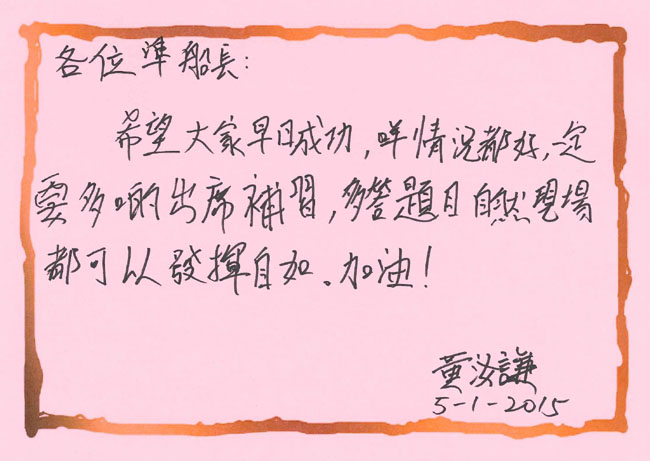 各位準船長:
希望大家早日成功,咩情況都好,一定
要多啲出席補習,多答題目自然現場
都可以發揮自如。加油!
黃汝謙
5-1-2015